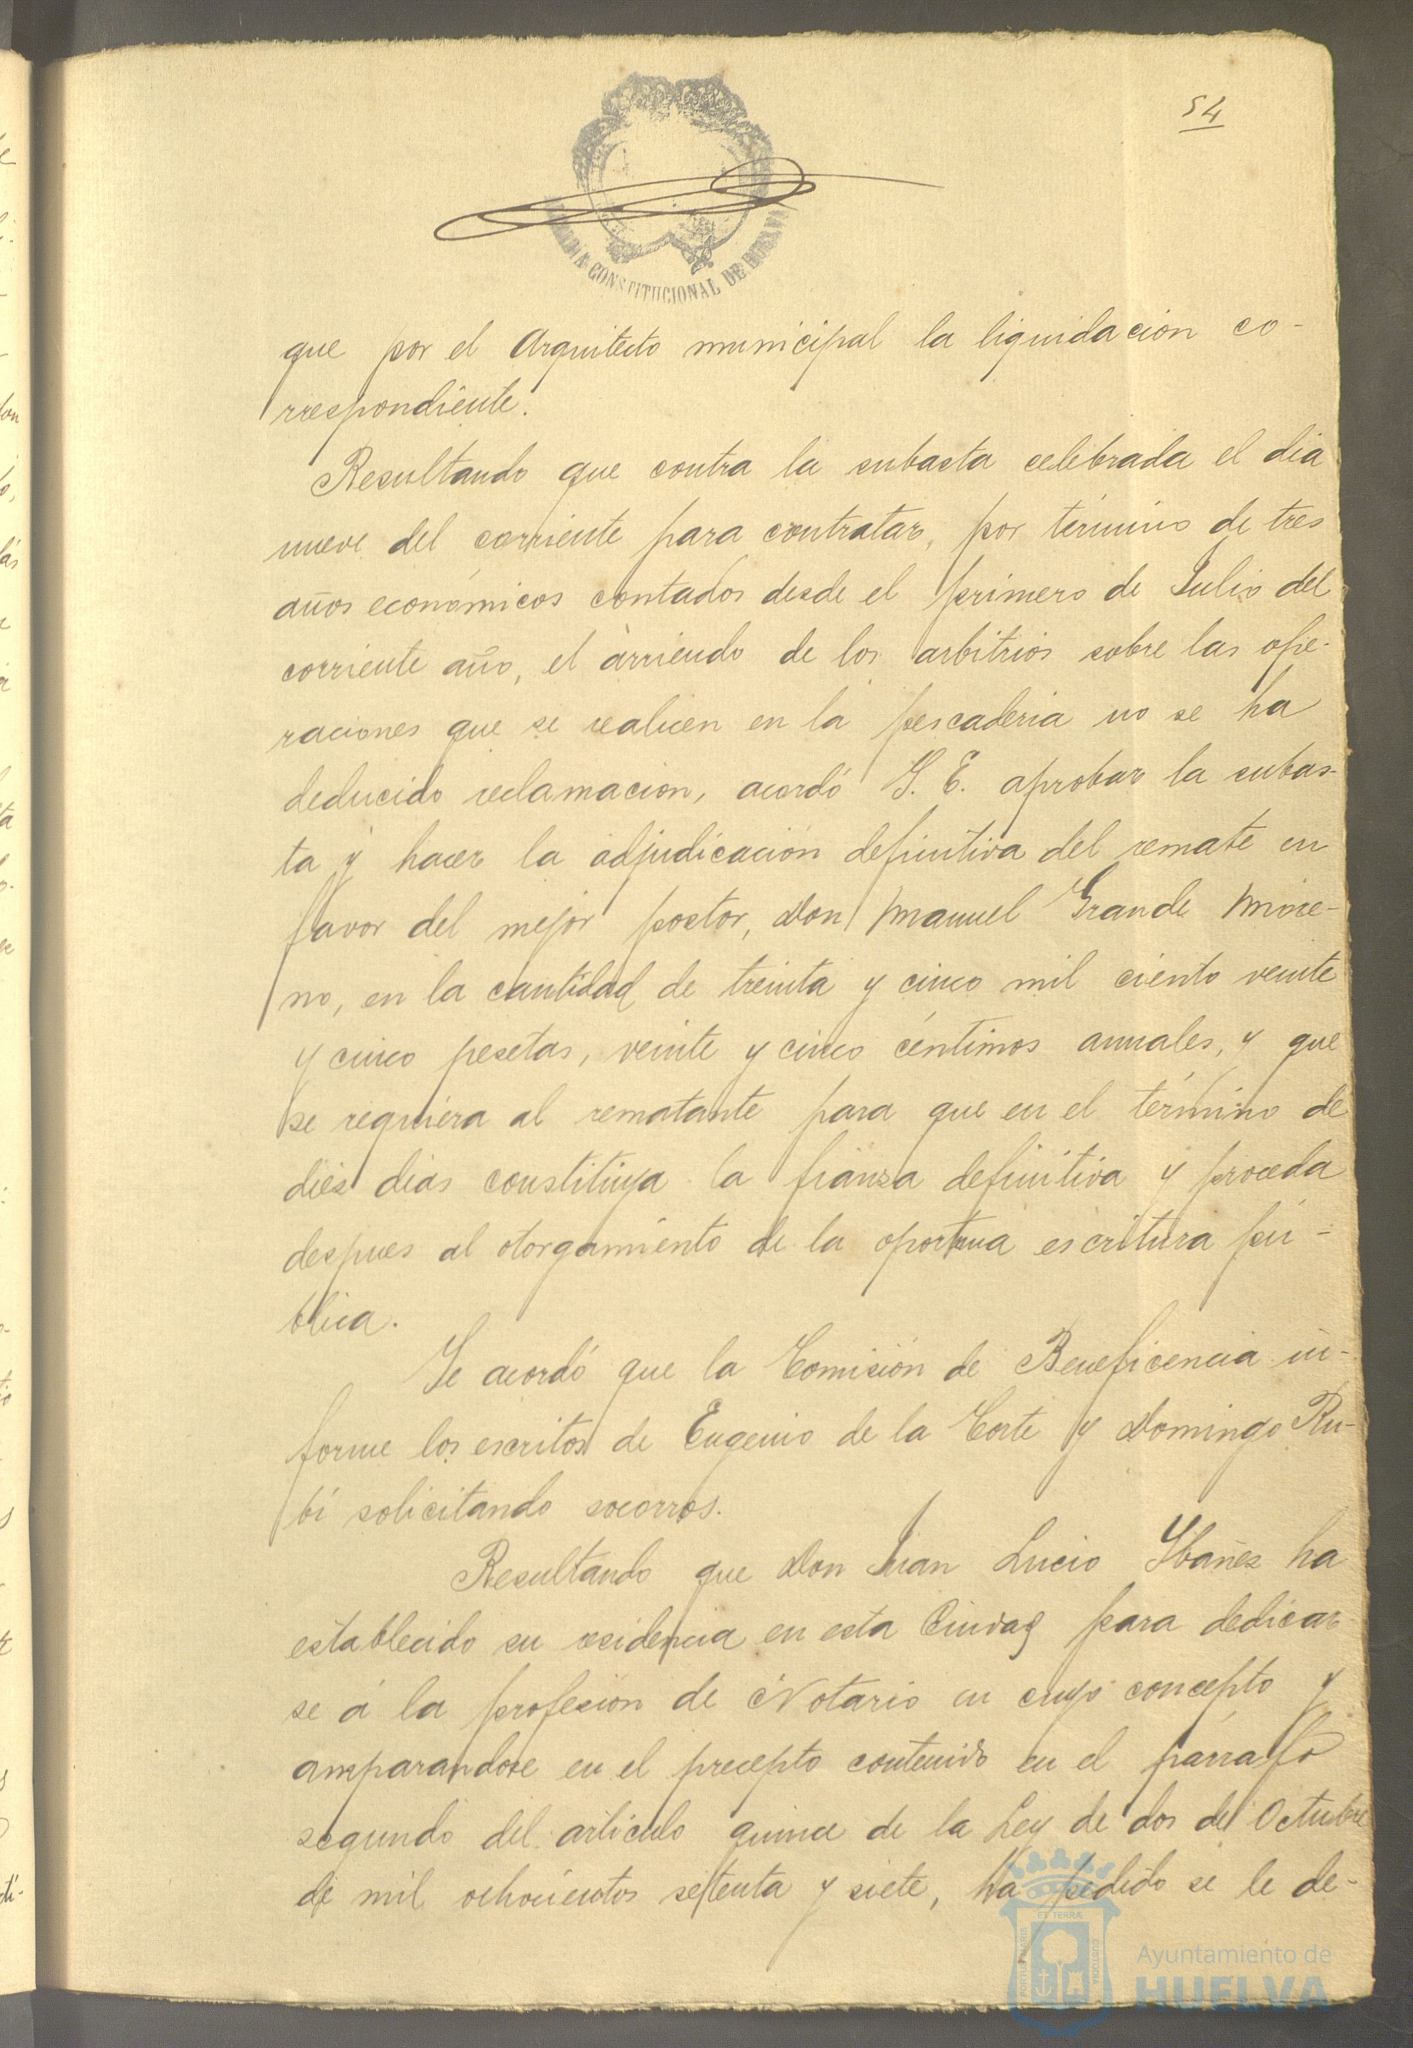 54
ALCALDIA CONSTITUCIONAL DE HUELVA
que por el Arquitecto municipal la liquidación co-
rrespondiente.
Resultando que contra la subasta celebrada el dia
nueve del corriente para contratar, por término de tres
años económicos contados desde el primero de Julio del
corriente año, el arriendo de los arbitrios sobre las ope-
raciones que se realicen en la pescaderia no se ha
deducido reclamacion, acordó S. E. aprobar la subas-
ta y hacer la adjudicación definitiva del remate en
favor del mejor postor, Don Manuel Grande More-
no, en la cantidad de treinta y cinco mil ciento veinte
y cinco pesetas, veinte y cinco céntimos anuales, y que
se requiera al rematante para que en el término de
diez dias constituya la fianza definitiva y proceda
despues al otorgamiento de la oportuna escritura pú-
blica.
Se acordó que la Comisión de Beneficencia in-
forme los escritos de Eugenio de la Corte y Domingo Ru-
bí solicitando socorros.
Resultando que Don Juan Lucio Ybañez ha
establecido su residencia en esta Ciudad para dedicar-
se á la profesión de Notario en cuyo concepto y
amparandose en el precepto contenido en el párrafo
segundo del articulo quince de la Ley de dos de Octubre
de mil ochocientos setenta y siete, ha pedido se le de-
Ayuntamiento de
HUELVA